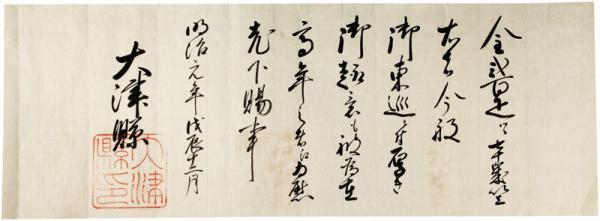 金弐百疋 七十歳以上
右者今般
御東巡ニ付厚き
御趣意も被為在
高年之者江為慰
老下賜事
明治元年戊辰十二月
大津縣
大津縣印